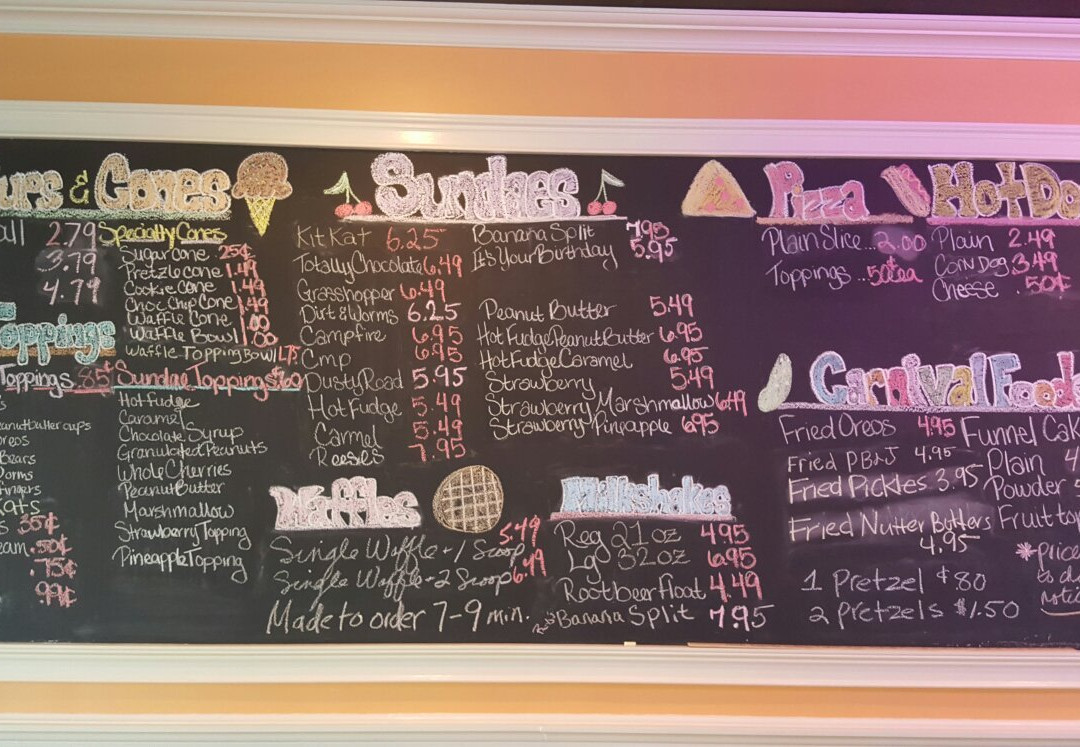 urs & Cones
all 2.79
3.79
4.79
Specialty Cones
Sugar cone .25¢
Pretzle cone 1.49
Cookie cone 1.49
Choc Chip Cone 1.49
Waffle Cone 1.00
Waffle Bowl 1.00
Waffle Topping Bowl 1.75
Toppings
Toppings .85¢
eanut butter cups
reos
Bears
orms
fingers
Kats
s 35¢
eam .50¢
.75¢
.99¢
Sundae Toppings
Hot fudge
Caramel
Chocolate Syrup
Granulated Peanuts
Whole Cherries
Peanut Butter
Marshmallow
Strawberry Topping
Pineapple Topping
Sundaes
Kit Kat 6.25
Totally Chocolate 6.49
Grasshopper 6.49
Dirt & Worms 6.25
Campfire 6.95
Cmp 6.95
Dusty Road 5.95
Hot Fudge 5.49
Carmel 5.49
Reese's 7.95
Banana Split 7.95
It's Your Birthday 5.95
Peanut Butter 5.49
Hot Fudge Peanut Butter 6.95
Hot Fudge Caramel 6.95
Strawberry 5.49
Strawberry Marshmallow 6.49
Strawberry Pineapple 6.95
Waffles
Single Waffle + 1 Scoop 5.49
Single Waffle + 2 Scoop 6.49
Made to order 7-9 min.
Milkshakes
Reg 21 oz 4.95
Lg 32 oz 6.95
Rootbeer float 4.49
Banana Split 7.95
Pizza
Plain Slice... 2.00
Toppings .. 50¢ea
Hot Do
Plain 2.49
Corn Dog 3.49
Cheese .50¢
Carnival Food
Fried Oreos 4.95
Fried PB&J 4.95
Fried Pickles 3.95
Fried Nutter Butters
4.95
1 Pretzel $.80
2 pretzels $1.50
Funnel Cak
Plain 4
Powder 5
Fruit to
*price
to c
notic